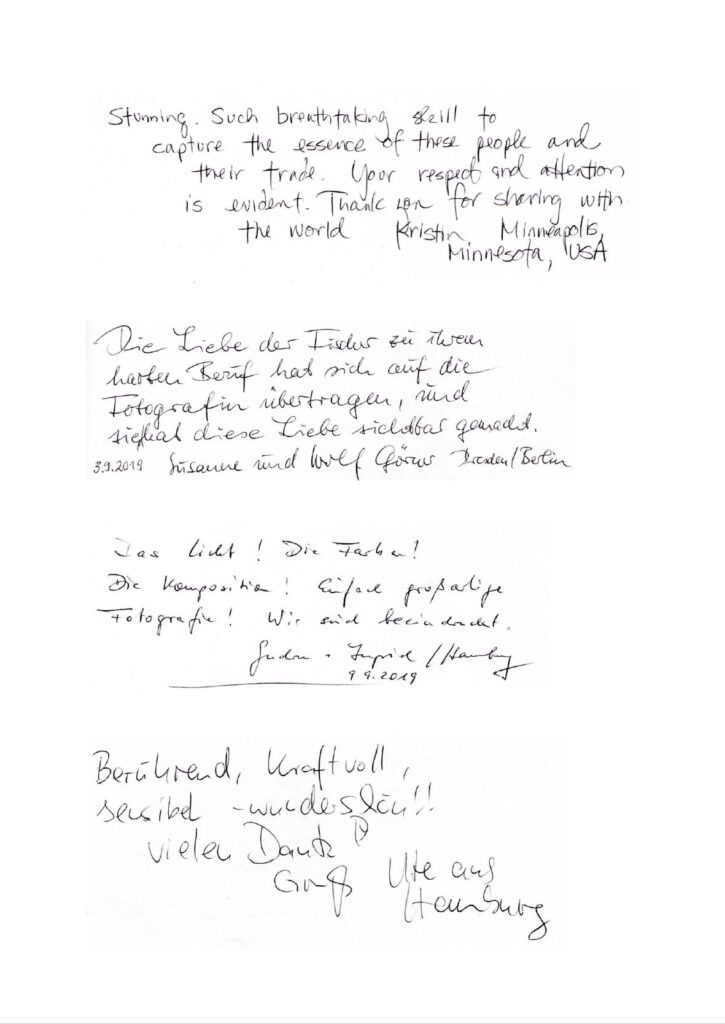 Stunning. Such breathtaking skill to
capture the essence of these people and
their trade. Your respect and attention
is evident. Thank you for sharing with
the world Kristin, Minneapolis,
Minnesota, USA
Die Liebe der Fischer zu ihrem
harten Beruf hat sich auf die
Fotografin übertragen, und
sie hat diese Liebe sichtbar gemacht.
3.9.2019 Susanne und Wolf Dresden/Berlin
Das Licht! Die Farben!
Die Komposition! Einfach großartige
Fotografie! Wir sind beeindruckt.
Gudrun + Ingrid /Hamburg
9.9.2019
Berührend, Kraftvoll,
sensibel - wunderschön!!
vielen Dank
Gruß Ute aus
Hamburg